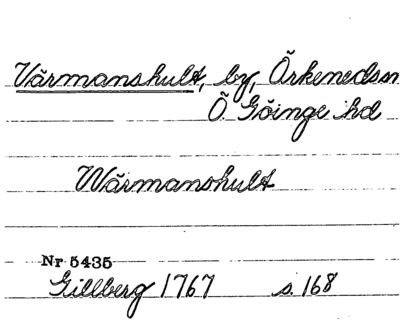 Värmanshult, by, Örkenedssn
Ö. Göinge hd
Wärmanshult
Nr 5435
Gillberg 1767 s. 168